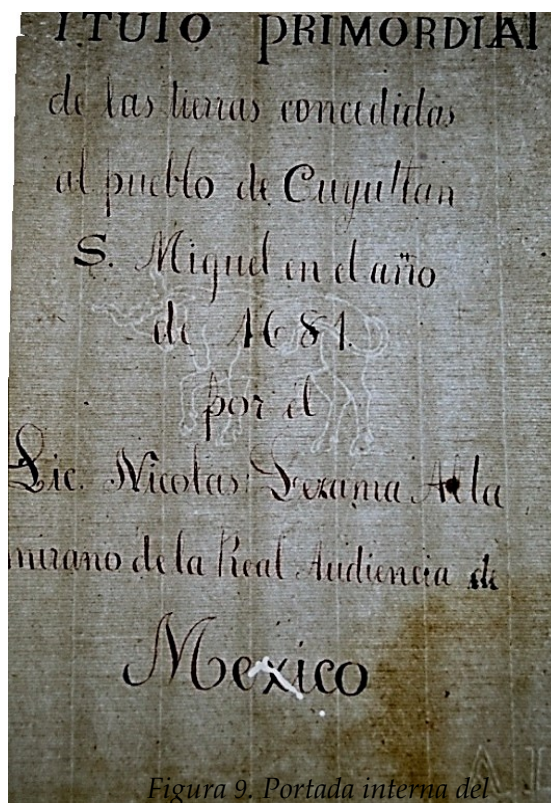 ITULO PRIMORDIAL
de las tierras concedidas
al pueblo de Cuyultan
S. Miguel en el año
de 1681.
por el
Lic. Nicolas Lezama Alta
mirano de la Real Audiencia de
Mexico
Figura 9. Portada interna del